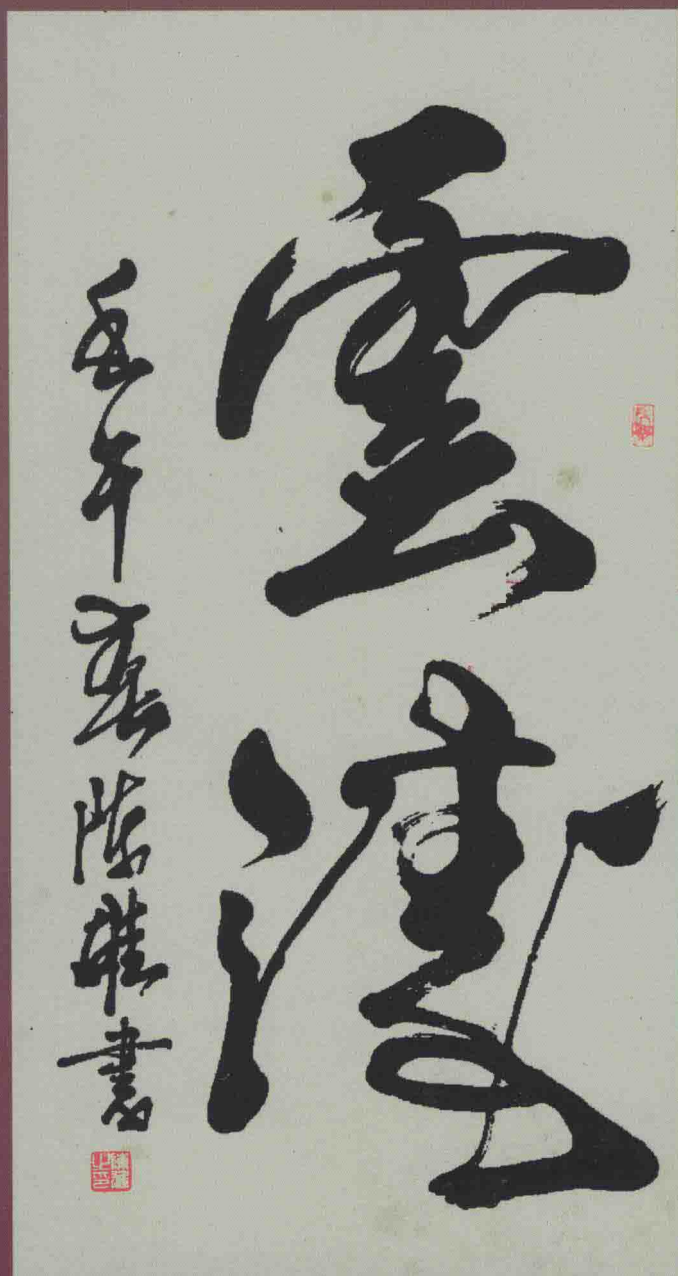 雲濤
壬午春陈雄書